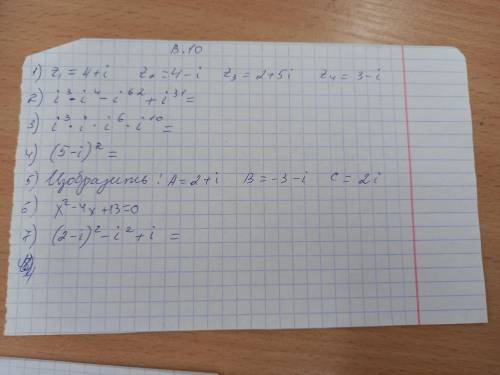 В.10
1) z₁ = 4+i z₂ = 4-i z₃ = 2+5i z₄ = 3-i
2) i³·i⁴ - i⁶² + i³¹ =
3) i³·i·i⁶·i¹⁰ =
4) (5-i)² =
5) Изобразить: A = 2+i B = -3-i C = 2i
6) x²-4x+13=0
7) (2-i)² - i² + i =